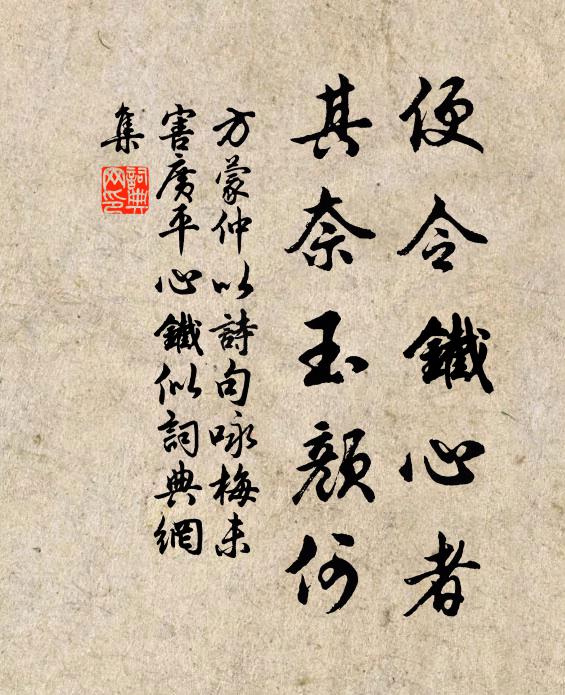 便令鐵心者
其奈玉顏何
方蒙仲以詩句咏梅未
害廣平心鐵似詞典網
集
詞典網印